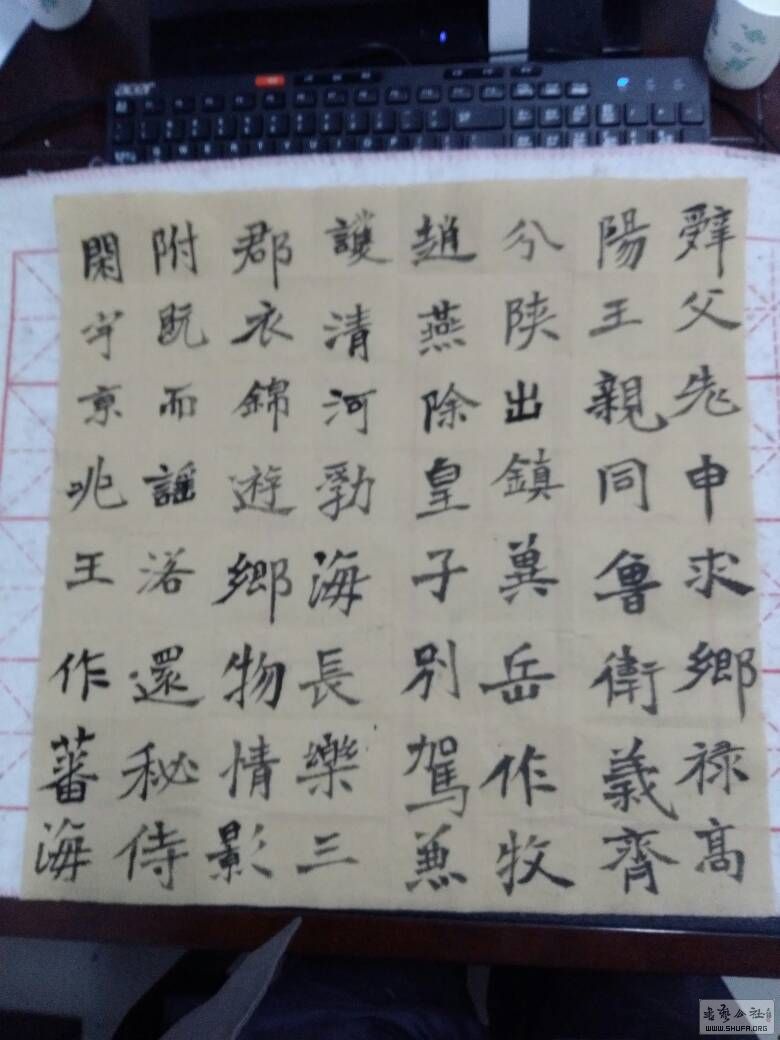 辤父老申求鄉禄高
陽王親同魯衛義齊
分陝出鎮冀岳作牧
趙燕除皇子別駕兼
護清河勃海長樂三
郡衣錦遊鄉物情影
附既而謡洛還秘侍
閑宇京兆王作蕃海
acer
書藝公社
WWW.SHUFA.ORG